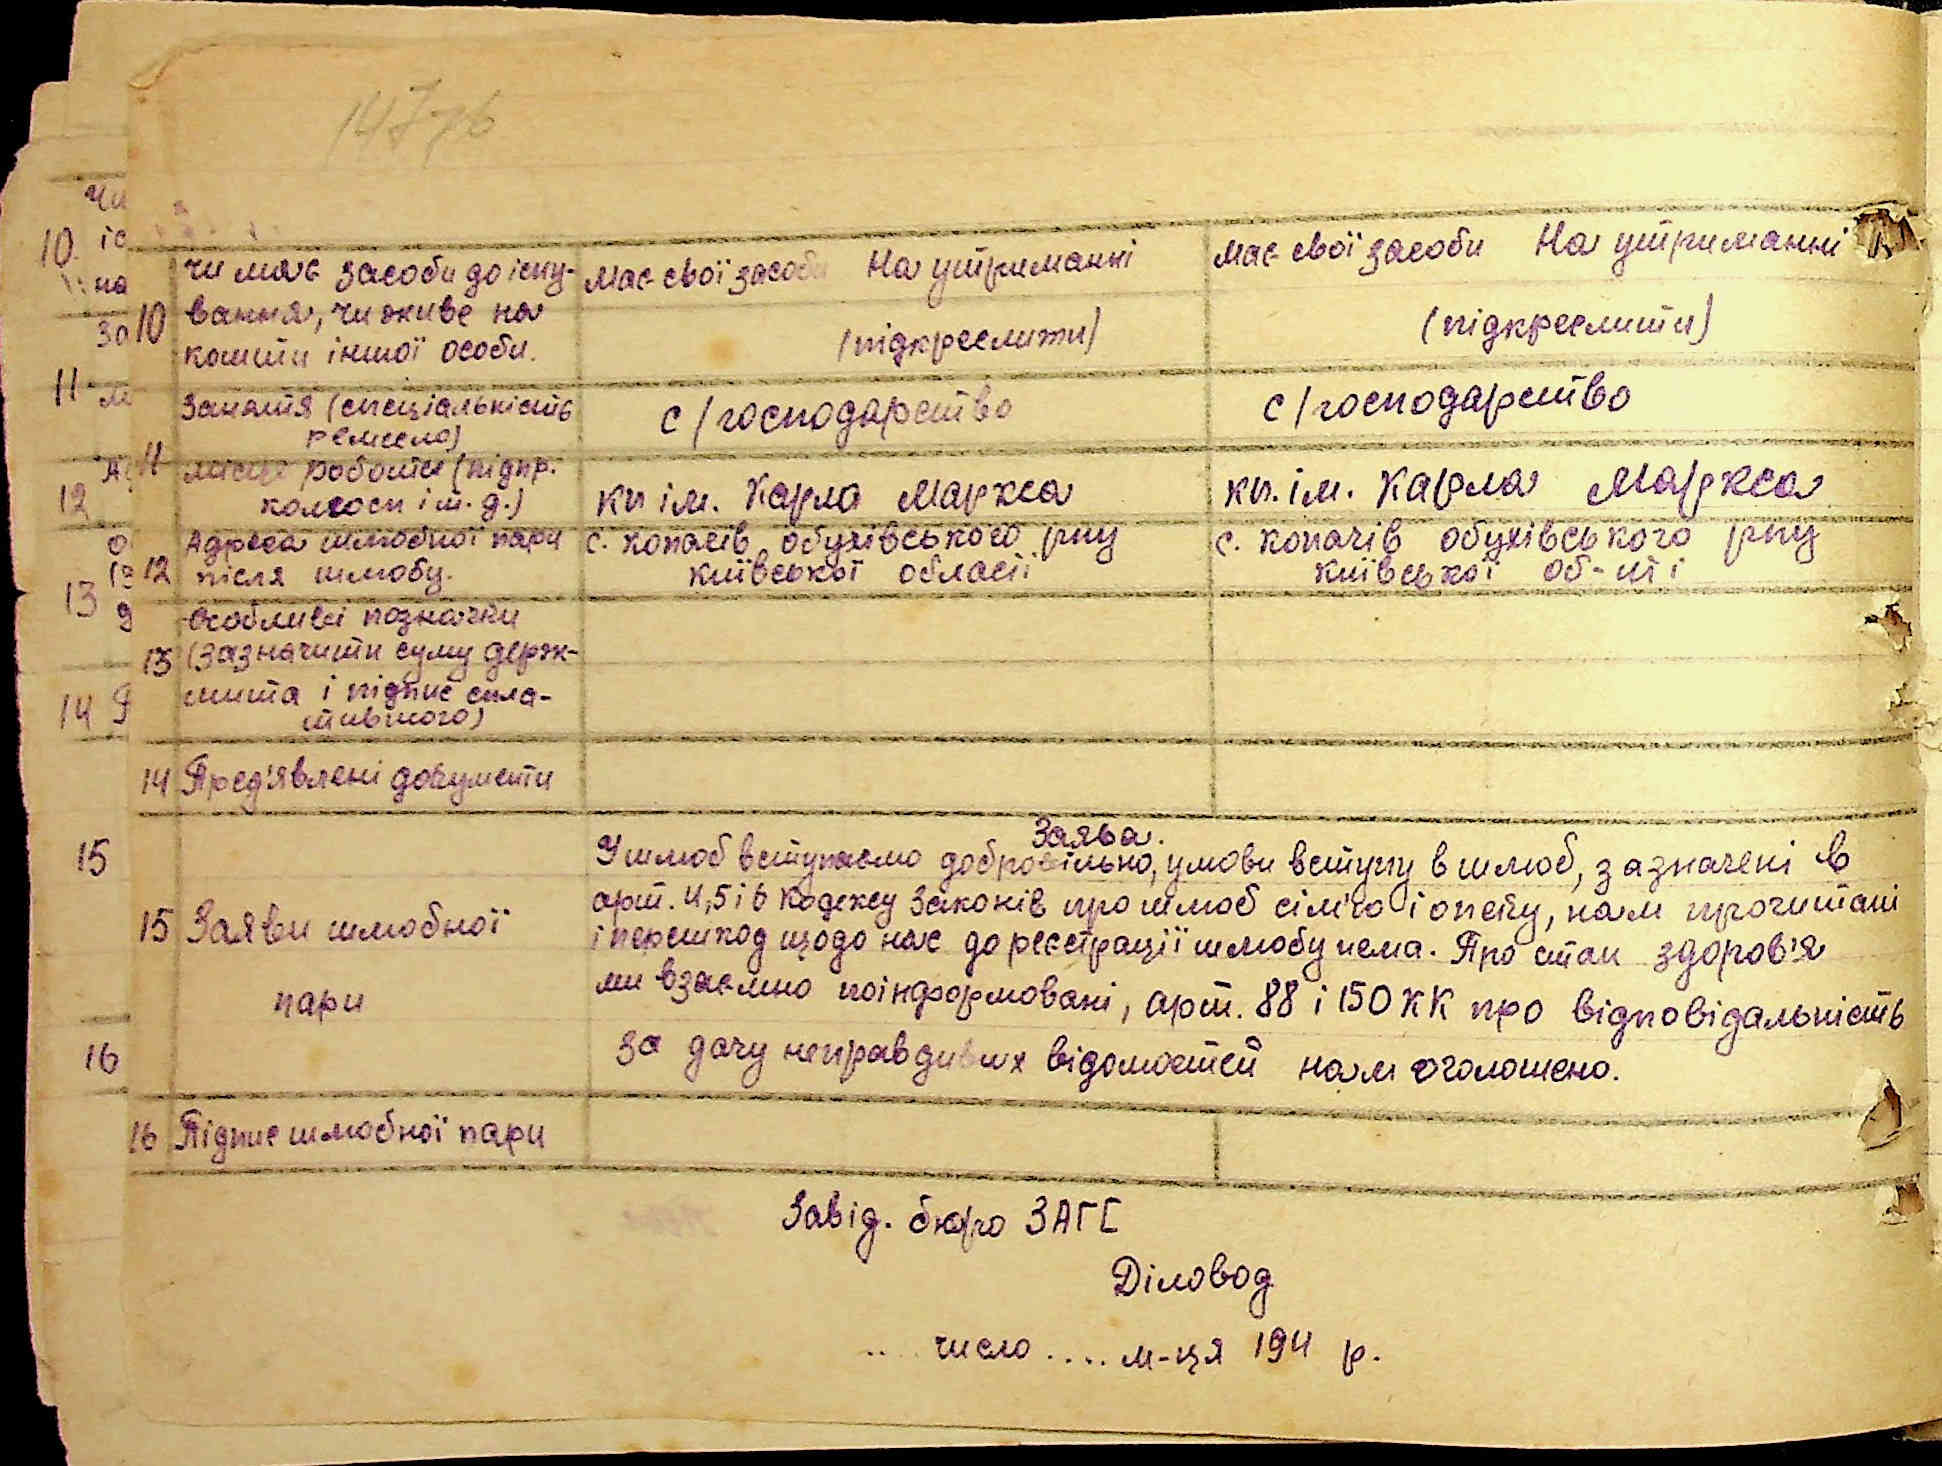 147зв
10 чи має засоби до існу-
вання, чи живе на
кошти іншої особи.
має свої засоби На утриманні
(підкреслити)
має свої засоби На утриманні
(підкреслити)
11 Заняття (спеціальність
ремесло)
с/господарство
с/господарство
місце роботи (підпр.
колгосп і т. д.)
кп ім. Карла Маркса
кп. ім. Карла Маркса
12 Адреса шлюбної пари
після шлюбу.
с. копачів обухівського рну
київської області
с. копачів обухівського рну
київської об-ті
13 Особливі позначки
(зазначити суму держ-
мита і підпис спла-
тившого)
14 Пред'явлені документи
15 Заяви шлюбної
пари
Заява.
У шлюб вступаємо добровільно, умови вступу в шлюб, зазначені в
арт. 4, 5 і 6 Кодексу Законів про шлюб сім'ю і опеку, нам прочитані
і перешкод щодо нас до реєстрації шлюбу нема. Про стан здоров'я
ми взаємно поінформовані, арт. 88 і 150 КК про відповідальність
за дачу неправдивих відомостей нам оголошено.
16 Підпис шлюбної пари
Завід. бюро ЗАГС
Діловод
.. число .... м-ця 194 р.
10
11
12
13
14
15
16